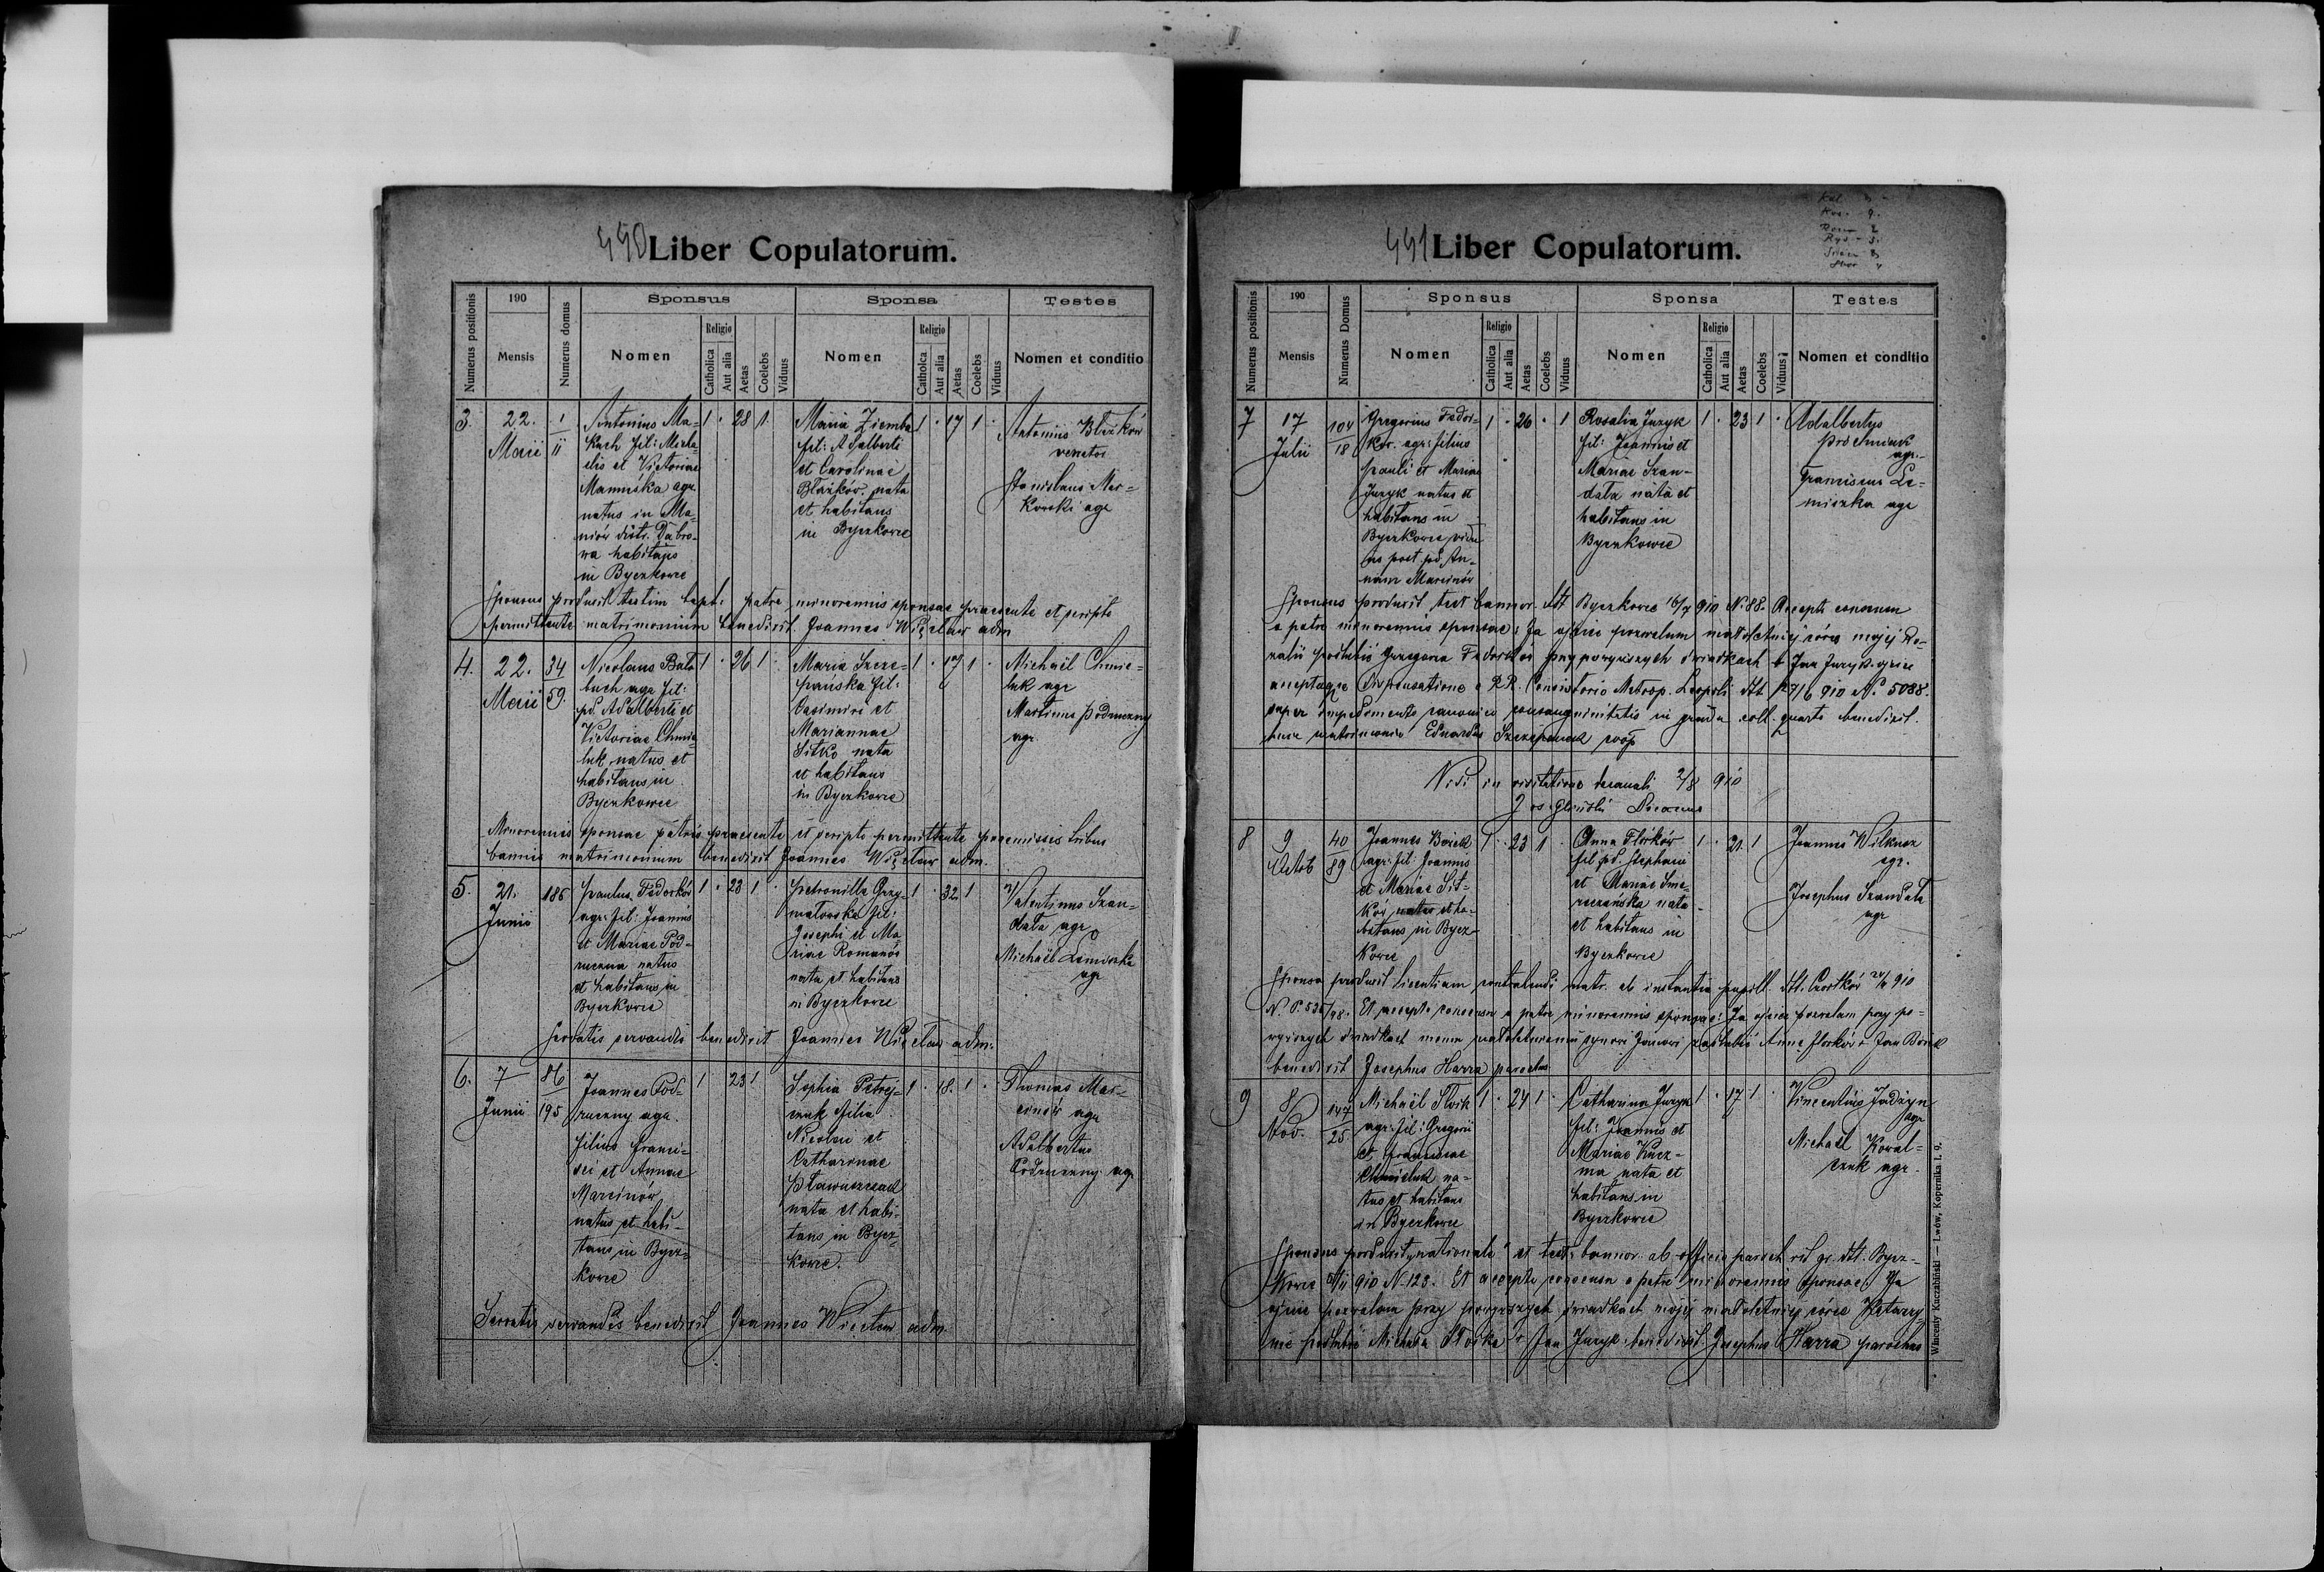 440 Liber Copulatorum.
Numerus positionis
190
Mensis
Numerus domus
Sponsus
Nomen
Religio
Catholica
Aut alia
Aetas
Coelebs
Viduus
Sponsa
Nomen
Religio
Catholica
Aut alia
Aetas
Coelebs
Viduus
Testes
Nomen et conditio
3.
22.
Maii
1
II
Antonius Ma-
kuch fil: Micha-
elis et Victoriae
agr.
natus in Ma-
niów distr. Dąbro-
wa habitans
in Byczkowce
1 · 28 1 ·
Maria Ziemba
fil: Adalberti
et Carolinae
Błażków nata
et habitans
in Byczkowce
1 · 17 1 ·
Antonius Błażków
venator
Stanislaus Mar-
kowski agr
Sponsus produxit testim bapt: patre minorennis sponsae praesente et scripto
permittente matrimonium benedixit Joannes Więcław adm
4.
22.
Maii
34
59.
Nicolaus Bała-
buch agr fil:
pd. Adalberti et
Victoriae Chmie-
luk natus et
habitans in
Byczkowce
1 · 26 1 ·
Maria Szcze-
pańska fil:
Casimiri et
Mariannae
Sitko nata
et habitans
in Byczkowce
1 · 17 1 ·
Michaël Chmie-
luk agr
Martinus Podruczny
agr
Minorennis sponsae patre praesente et scripto permittente praemissis tribus
bannis matrimonium benedixit Joannes Więcław adm.
5.
21.
Junii
186
Paulus Fedorków
agr. fil: Joannis
et Mariae Pod-
ruczna natus
et habitans in
Byczkowce
1 · 23 1 ·
Petronilla Grzy-
matowska fil:
Josephi et Ma
riae Romanów
nata et habitans
in Byczkowce
1 · 32 1
Valentinus Szan-
data agr
Michaël Lemiszka
agr
Servatis servandis benedixit Joannes Więcław adm.
6.
7
Junii
86
195
Joannes Pod-
ruczny agr.
filius Franci-
sci et Annae
Marcinów
natus et habi-
tans in Bycz-
kowce
1 23 1
Sophia Petrej-
czuk filia
Nicolai et
Catharinae
nata et habi-
tans in Bycz-
kowce.
1 · 18 · 1 ·
Thomas Mar-
cinów agr
Adalbertus
Podruczny agr
Servatis servandis benedixit Joannes Więcław adm.
441 Liber Copulatorum.
Numerus positionis
190
Mensis
Numerus Domus
Sponsus
Nomen
Religio
Catholica
Aut alia
Aetas
Coelebs
Viduus
Sponsa
Nomen
Religio
Catholica
Aut alia
Aetas
Coelebs
Viduus
Testes
Nomen et conditio
7
17
Julii
104
18
Gregorius Fedor-
ków. agr: filius
Pauli et Mariae
Juzyk natus et
habitans in
Byczkowce vidu
us post pd. An-
nam Marcinów
1 · 26 · 1
Rosalia Juzyk
fil: Joannis et
Mariae Szan-
data nata et
habitans in
Byczkowce
1 · 23 1 ·
Adalbertus
agr.
Franciscus Le-
miszka agr
Sponsus produxit test bannor. dtt Byczkowce 16/7 910 N: 88. Accepto consensu
a patre minorennis sponsae: Ja ojciec pozwalam małoletniej córce mojej Ro-
zalii poślubić Grzegorza Fedorków przy powyższych świadkach + Jan Juzyk ojciec
acceptaque dispensatione a RR. Consistorio Metrop. Leopoli dtt 910 No. 5088.
super impedimento canonico consanguinitatis in gradu coll. quarto benedixit
huic matrimonio Eduardus Szczepanek coop
Vidi in visitatione decanali 2/8 910
Decanus
8
9
Octob
40
89
Joannes Borek
agr: fil: Joannis
et Mariae Sit-
ków natus et ha-
bitans in Bycz-
kowce
1 · 23 1 ·
Anna Florków
fil pd. Stephani
et Mariae
nata
et habitans in
Byczkowce
1 · 21 · 1
Joannes
agr.
Josephus Szandata
agr
Sponsa produxit licentiam contrahendi matr. ab instantia pupill. dtt. Czortków 910
Et accepto consensu a patre minorennis sponsae: Ja ojciec pozwalam przy po-
wyższych świadkach memu małoletniemu synowi Janowi zaślubić Annę Florków + Jan Borek
benedixit Josephus Harra parochus
9
8
Nov.
147
25
Michaël Słvik
agr: fil: Gregorii
et Franciscae
Chmieluk na-
tus et habitans
in Byczkowce
1 · 24 1 ·
Catharina Juzyk
fil: Joannis et
Mariae Kucz-
ma nata et
habitans in
Byczkowce
1 · 17 1 ·
Vincentius Jadzyn
agr
Michaël Kowal-
czuk agr.
Sponsus produxit et test. bannor. ab officio paroch rit gr. dtt. Bycz-
kowce 910 N. 123. Et accepto consensu a patre minorennis sponsae: Ja
ojciec pozwalam przy powyższych świadkach mojej małoletniej córce Katarzy-
nie poślubić Michała + Jan Juzyk benedixit Josephus Harra parochus
Wincenty Kuczabiński — Lwów, Kopernika l. 9.